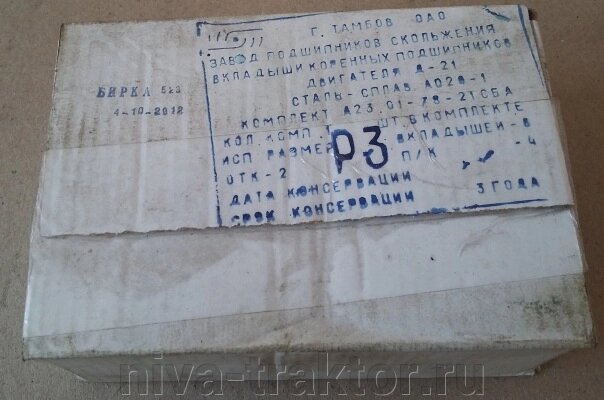 Г. ТАМБОВ ОАО
ЗАВОД ПОДШИПНИКОВ СКОЛЬЖЕНИЯ
ВКЛАДЫШИ КОРЕННЫХ ПОДШИПНИКОВ
ДВИГАТЕЛЯ Д-21
СТАЛЬ-СПЛАВ АО20-1
КОМПЛЕКТ А23.01-78-21СБА
КОЛ.КОМП. ШТ.В КОМПЛЕКТЕ
ИСП РАЗМЕР Р3 ВКЛАДЫШЕЙ-8
ОТК-2 П/К -4
ДАТА КОНСЕРВАЦИИ
СРОК КОНСЕРВАЦИИ 3 ГОДА
БИРКА 523
4-10-2012
niva-traktor.ru